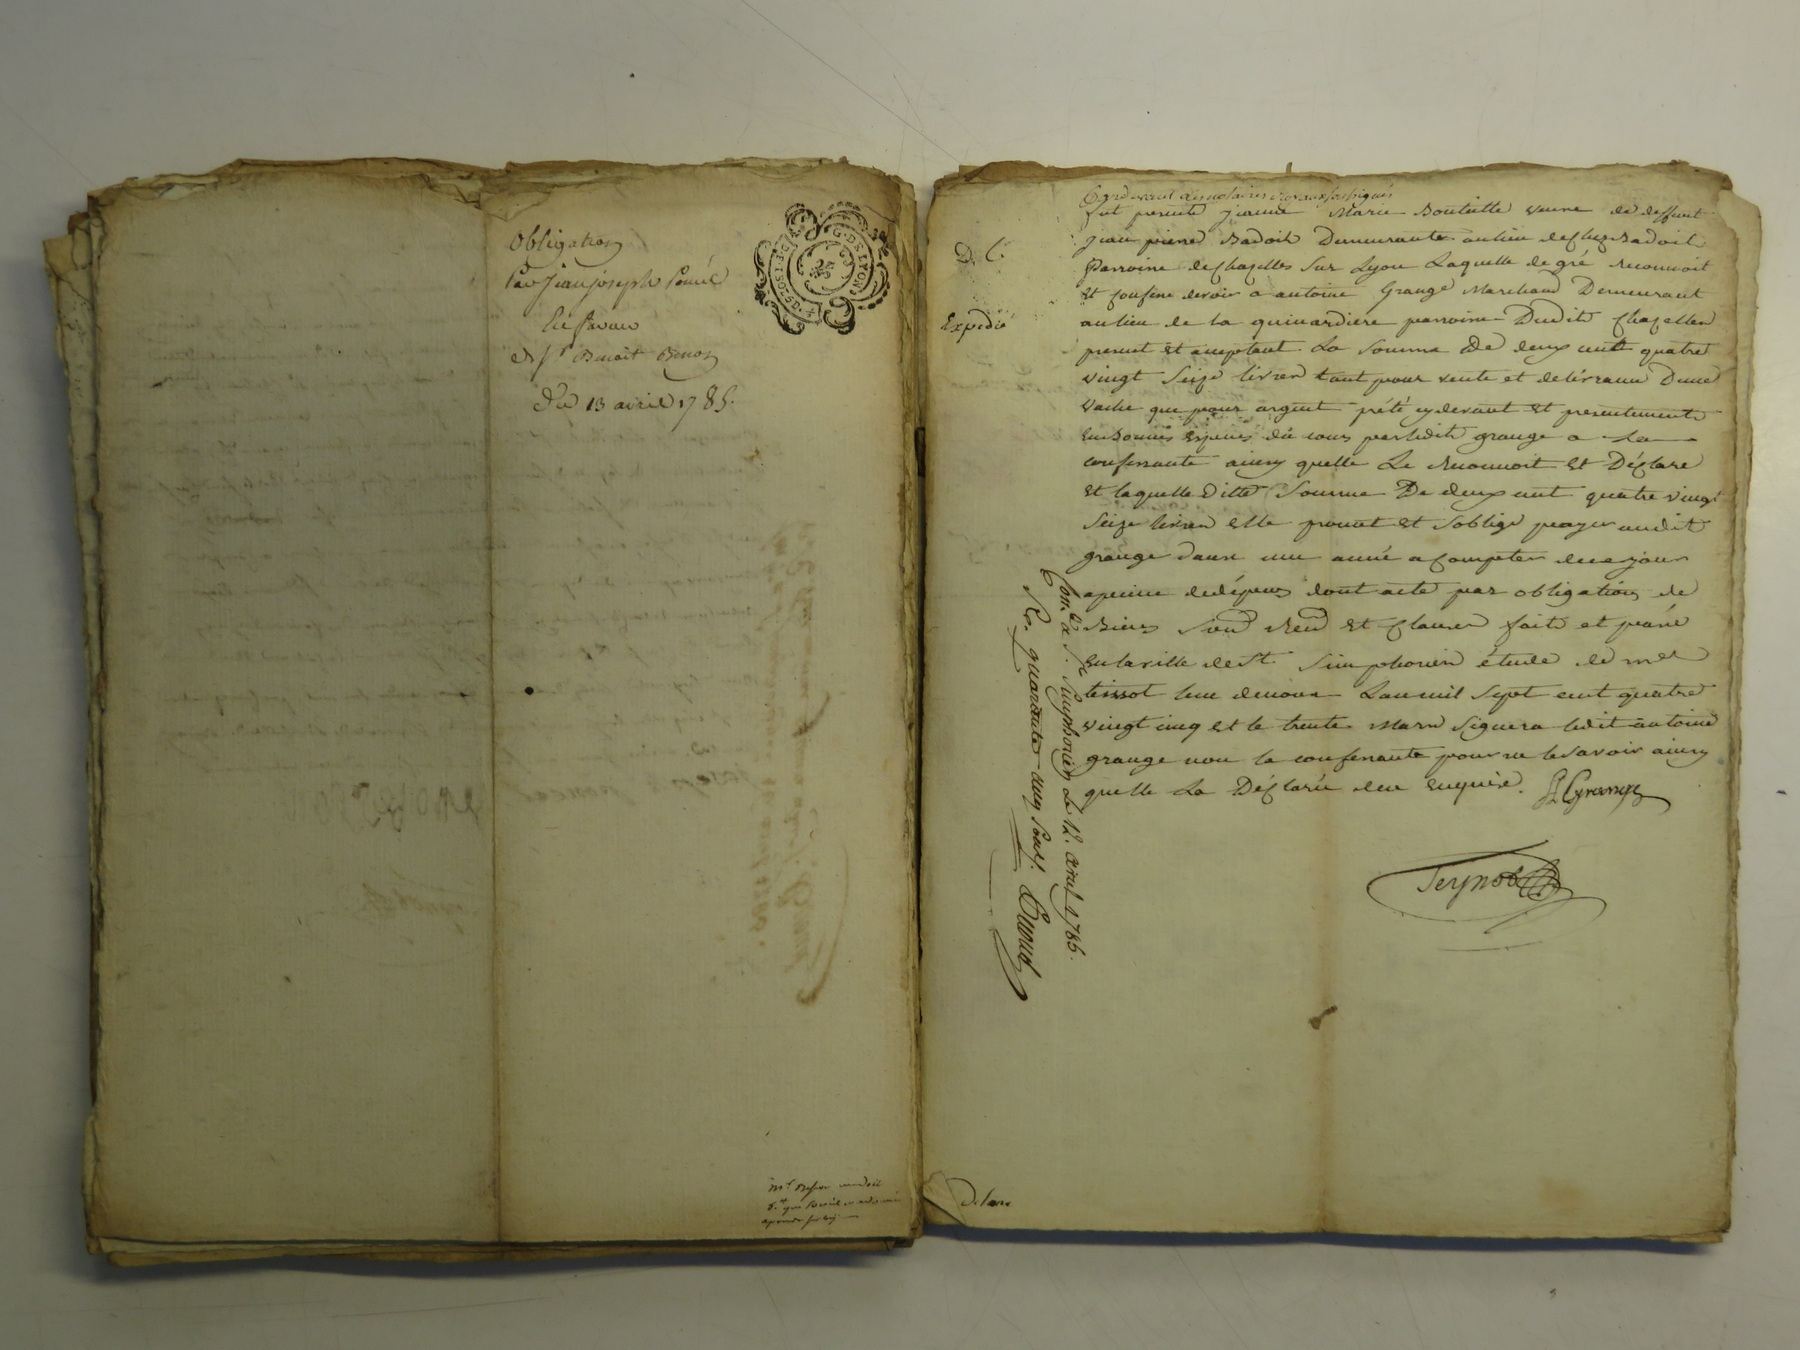 Obligation
Par Jean joseph
En faveur
de Sr Benoit
Du 13 avril 1785.
G. DE LYON
D. C.
Expedié
Pardevant les notaires royaux soussignés
fut presente jeanne Marie Bouteille veuve de deffunt
jean pierre Badoit Demeurante au lieu de chez Badoit
Parroisse de chazelles sur Lyon Laquelle de gré reconnoit
et confesse devoir a antoine Grange Marchand Demeurant
au lieu de la quinardiere parroisse Dudit chazelles
present et acceptant La somme De deux cent quatre
vingt seize livres tant pour vente et delivrance Dune
vache que pour argent prété cydevant et presentement
en bonnes especes de cours par ledit grange a La
confessante ainsy quelle Le reconnoit et Déclare
et laquelle ditte somme De deux cent quatre vingt
seize livres elle promet et soblige payer audit
grange dans une année a compter de ce jour
a peinne de dépens dont acte par obligation de
Biens soum renon et clauses fait et passé
en la ville de St. simphorien étude de me
teissot lun de nous Lan mil sept cent quatre
vingt cinq et le trente Mars signera ledit antoine
grange non la confessante pour ne le savoir ainsy
quelle La Déclaré de ce enquise. Grange
Con.lé a St. Simphorien Le 12. avril 1785.
R. quarante cinq sous.